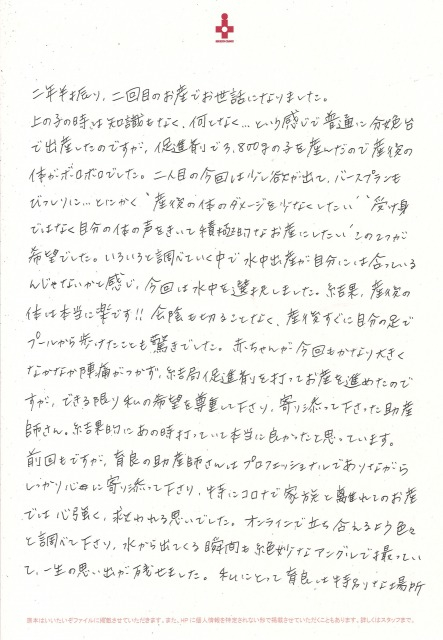 二年半振り、二回目のお産でお世話になりました。
上の子の時は知識もなく、何となく…という感じで普通に分娩台
で出産したのですが、促進剤で3,800gの子を産んだので産後の
体がボロボロでした。二人目の今回は少し欲が出て、バースプランも
びっしりに…とにかく“産後の体のダメージを少なくしたい”“受け身
ではなく自分の体の声をきいて積極的なお産にしたい”この2つが
希望でした。いろいろと調べていく中で水中出産が自分には合っている
んじゃないかと感じ、今回は水中を選択しました。結果、産後の
体は本当に楽です!! 会陰も切ることなく、産後すぐに自分の足で
プールから歩けたことも驚きでした。赤ちゃんが今回もかなり大きく
なかなか陣痛がつかず、結局促進剤を打ってお産を進めたので
すが、できる限り私の希望を尊重して下さり、寄り添って下さった助産
師さん。結果的にあの時打っていて本当に良かったと思っています。
前回もですが、育良の助産師さんはプロフェッショナルでありながら
しっかり心母に寄り添って下さり、特にコロナで家族と離れてのお産
では心強く、救われる思いでした。オンラインで立ち会えるよう色々
と調べて下さり、水から出てくる瞬間も絶妙なアングルで撮ってい
て、一生の思い出が残せました。私にとって育良は特別な場所
原本はいいたいぞファイルに掲載させていただきます。また、HPに個人情報を特定されない形で掲載させていただくこともあります。詳しくはスタッフまで。